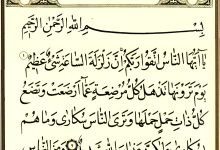 بسم الله الرحمن الرحيم
يا أيها الناس اتقوا ربكم إن زلزلة الساعة شيء عظيم ١
يوم ترونها تذهل كل مرضعة عما أرضعت وتضع
كل ذات حمل حملها وترى الناس سكارى وما هم